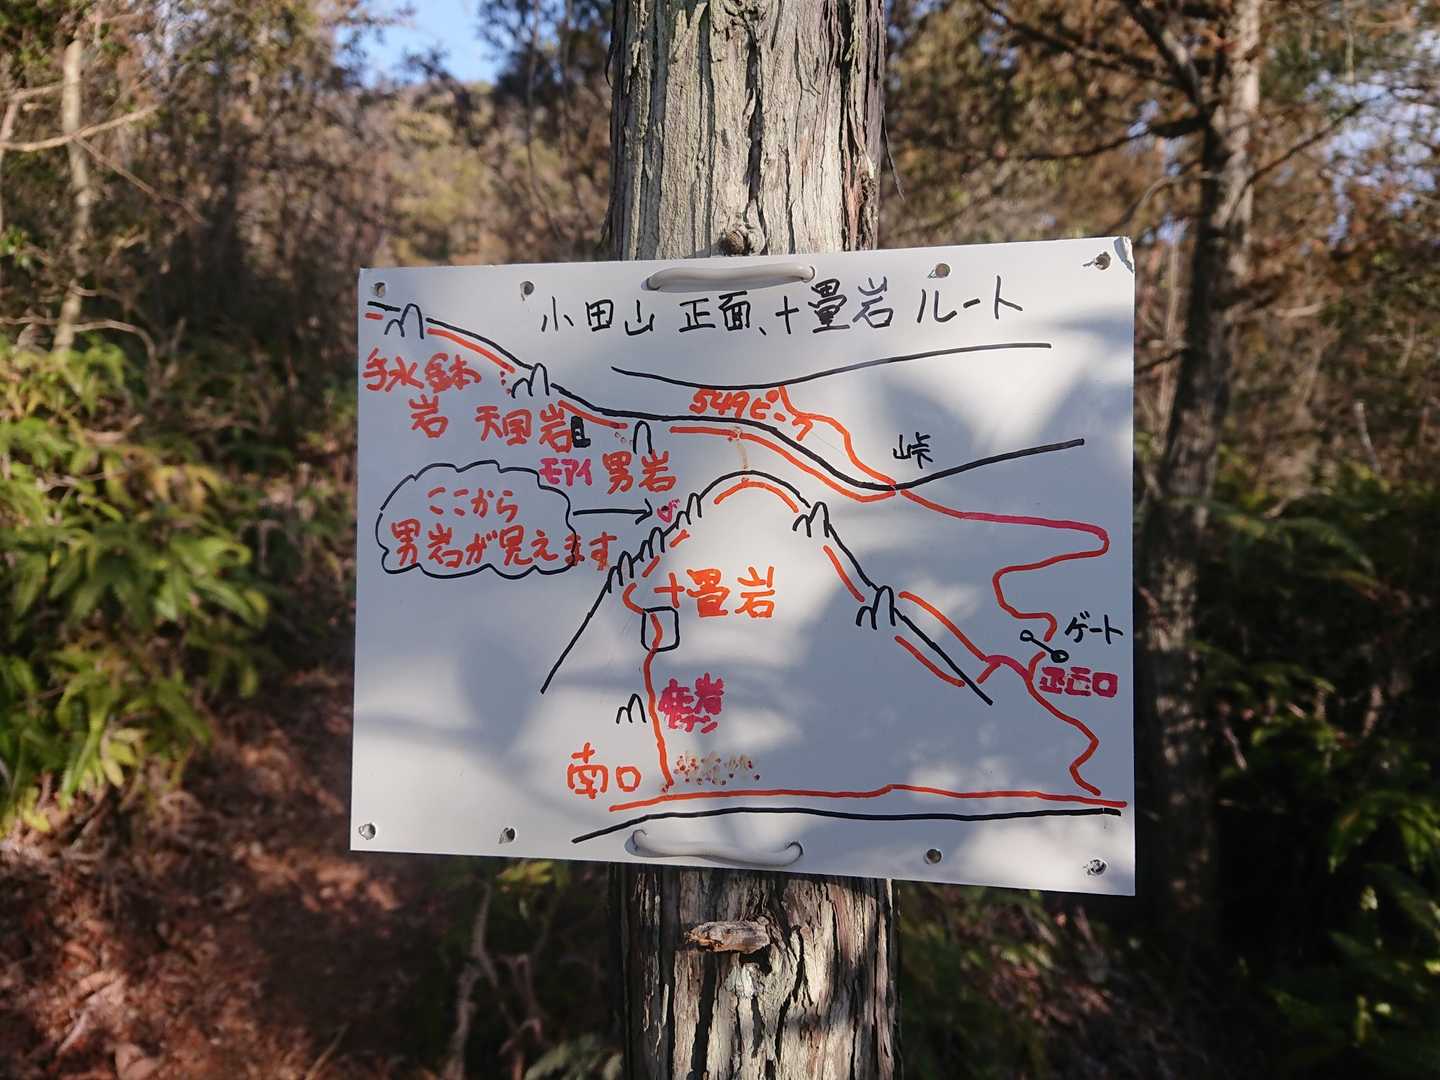 小田山 正面、十畳岩 ルート
手水鉢
岩
天国岩
549ピーク
峠
モアイ
男岩
ここから
男岩が見えます
十畳岩
ゲート
正面口
南口